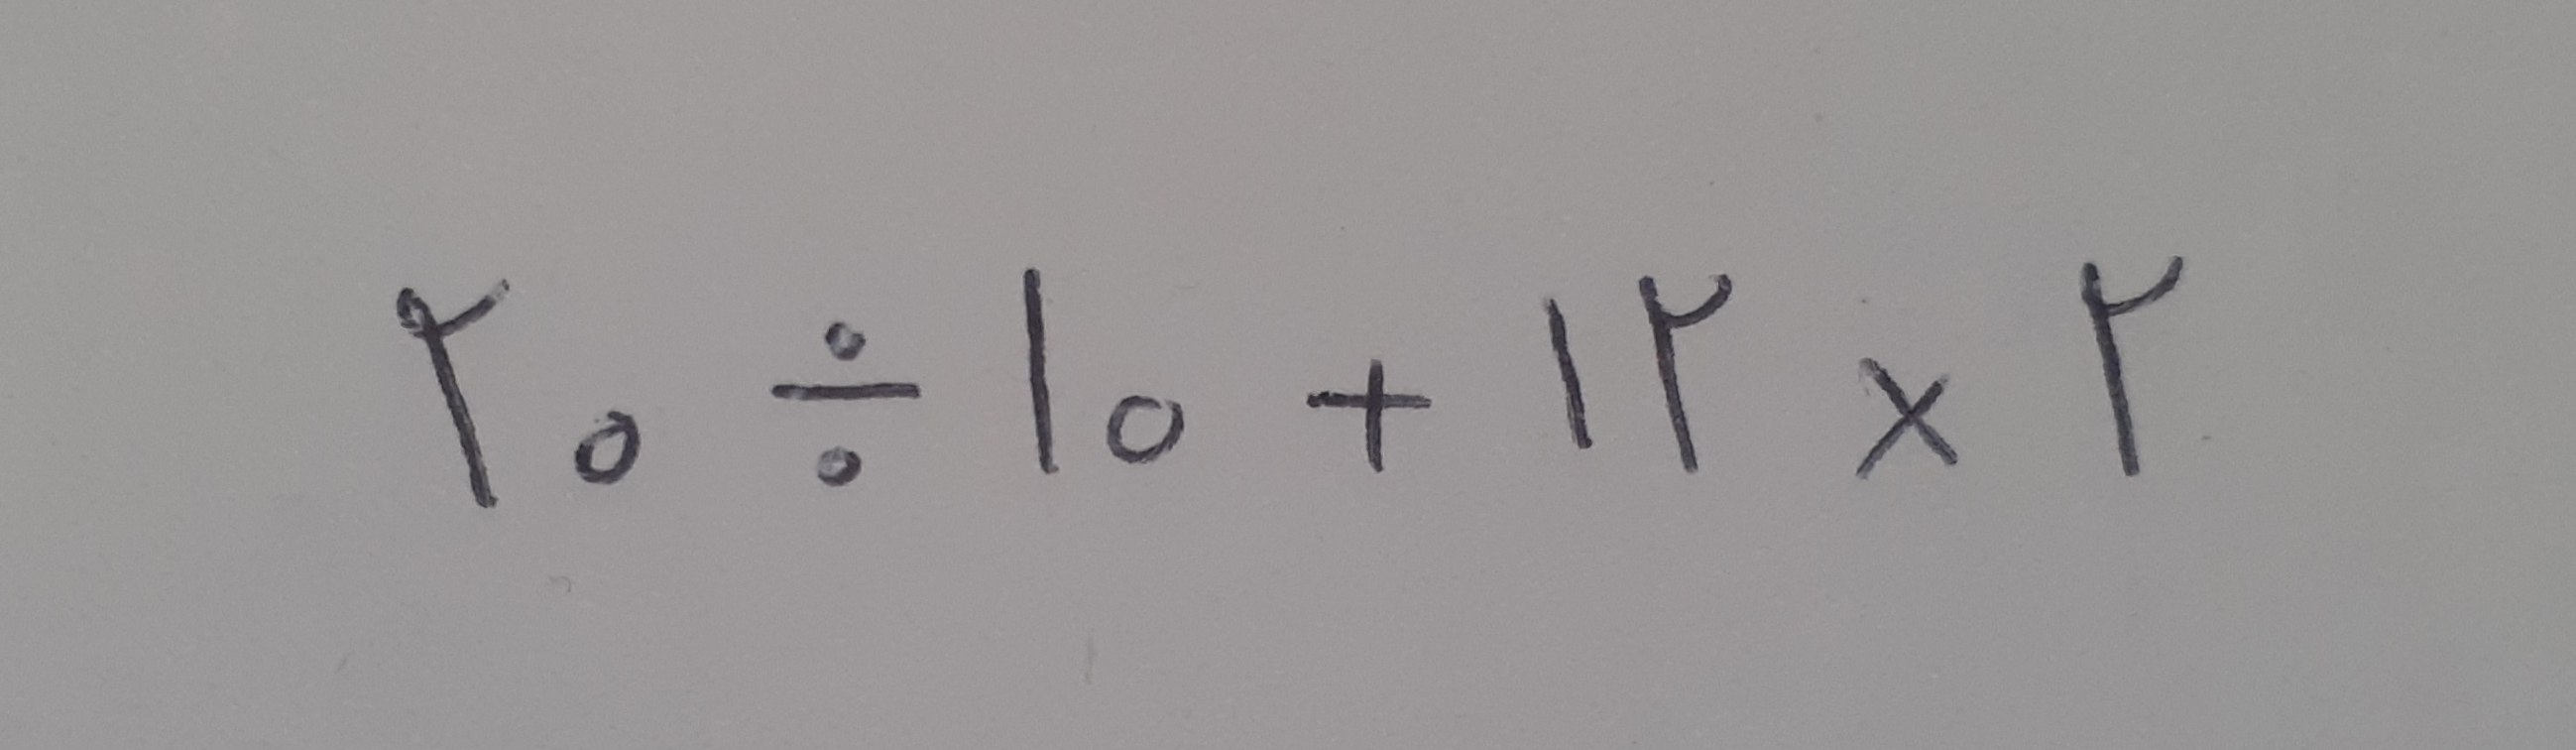 ۲۰ ÷ ۱۰ + ۱۲ × ۲